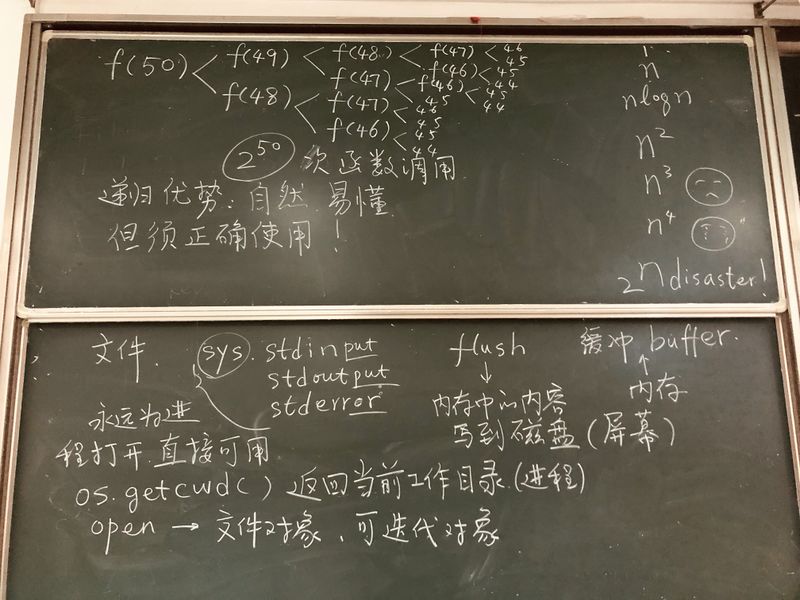 f(50) < f(49) < f(48) < f(47) < 46 45
f(46) < 45 44
f(47) < f(46) < 45 44
45
f(48) < f(47) < 46 45
f(46) < 45 44
2^50 次函数调用
递归优势：自然 易懂
但须正确使用！
1
n
nlogn
n²
n³
n⁴
2^n disaster!
文件. sys. stdinput
stdoutput
stderror
永远为进
程打开.直接可用
flush
↓
内存中的内容
写到磁盘(屏幕)
缓冲 buffer.
↑
内存
os.getcwd() 返回当前工作目录.(进程)
open → 文件对象、可迭代对象